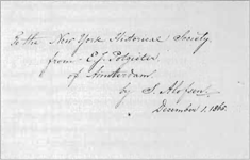 To the New York Historical Society
from E. J. Potgieter
of Amsterdam
by S. Alofsen
December 1. 1865.